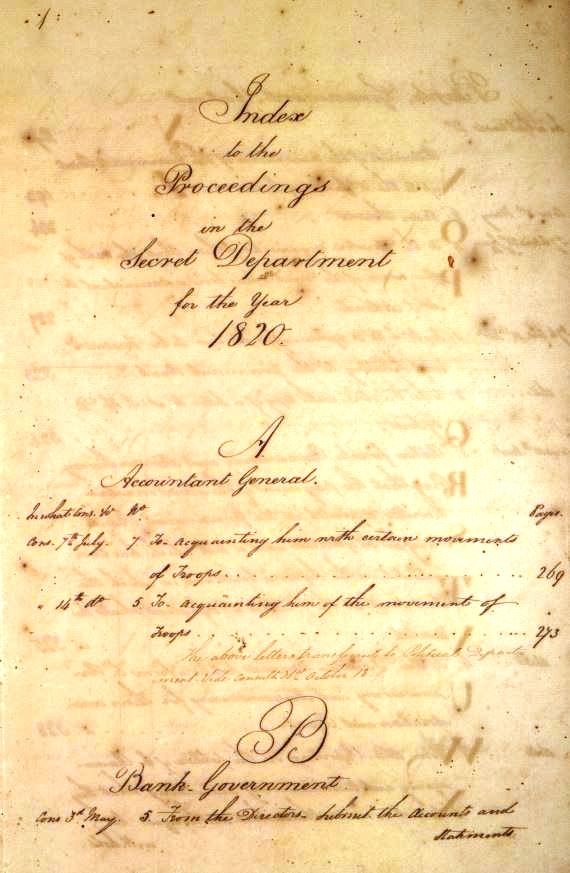 1.
Index
to the
Proceedings
in the
Secret Department
for the Year
1820.
A
Accountant General.
In what Cons. No Pages.
Cons. 7th July. 7 To- acquainting him with certain movements
of Troops. . . . . . . . . . . . . . . . . . 269
" 14th do 5. To- acquainting him of the movement of
Troops. . . . . . . . . . . . . . . . . . 273
The above letters transferred to Political Depart-
ment Vide October
B
Bank-Government.
Cons 3d May. 5. From the Directors- submit the Accounts and
Statments